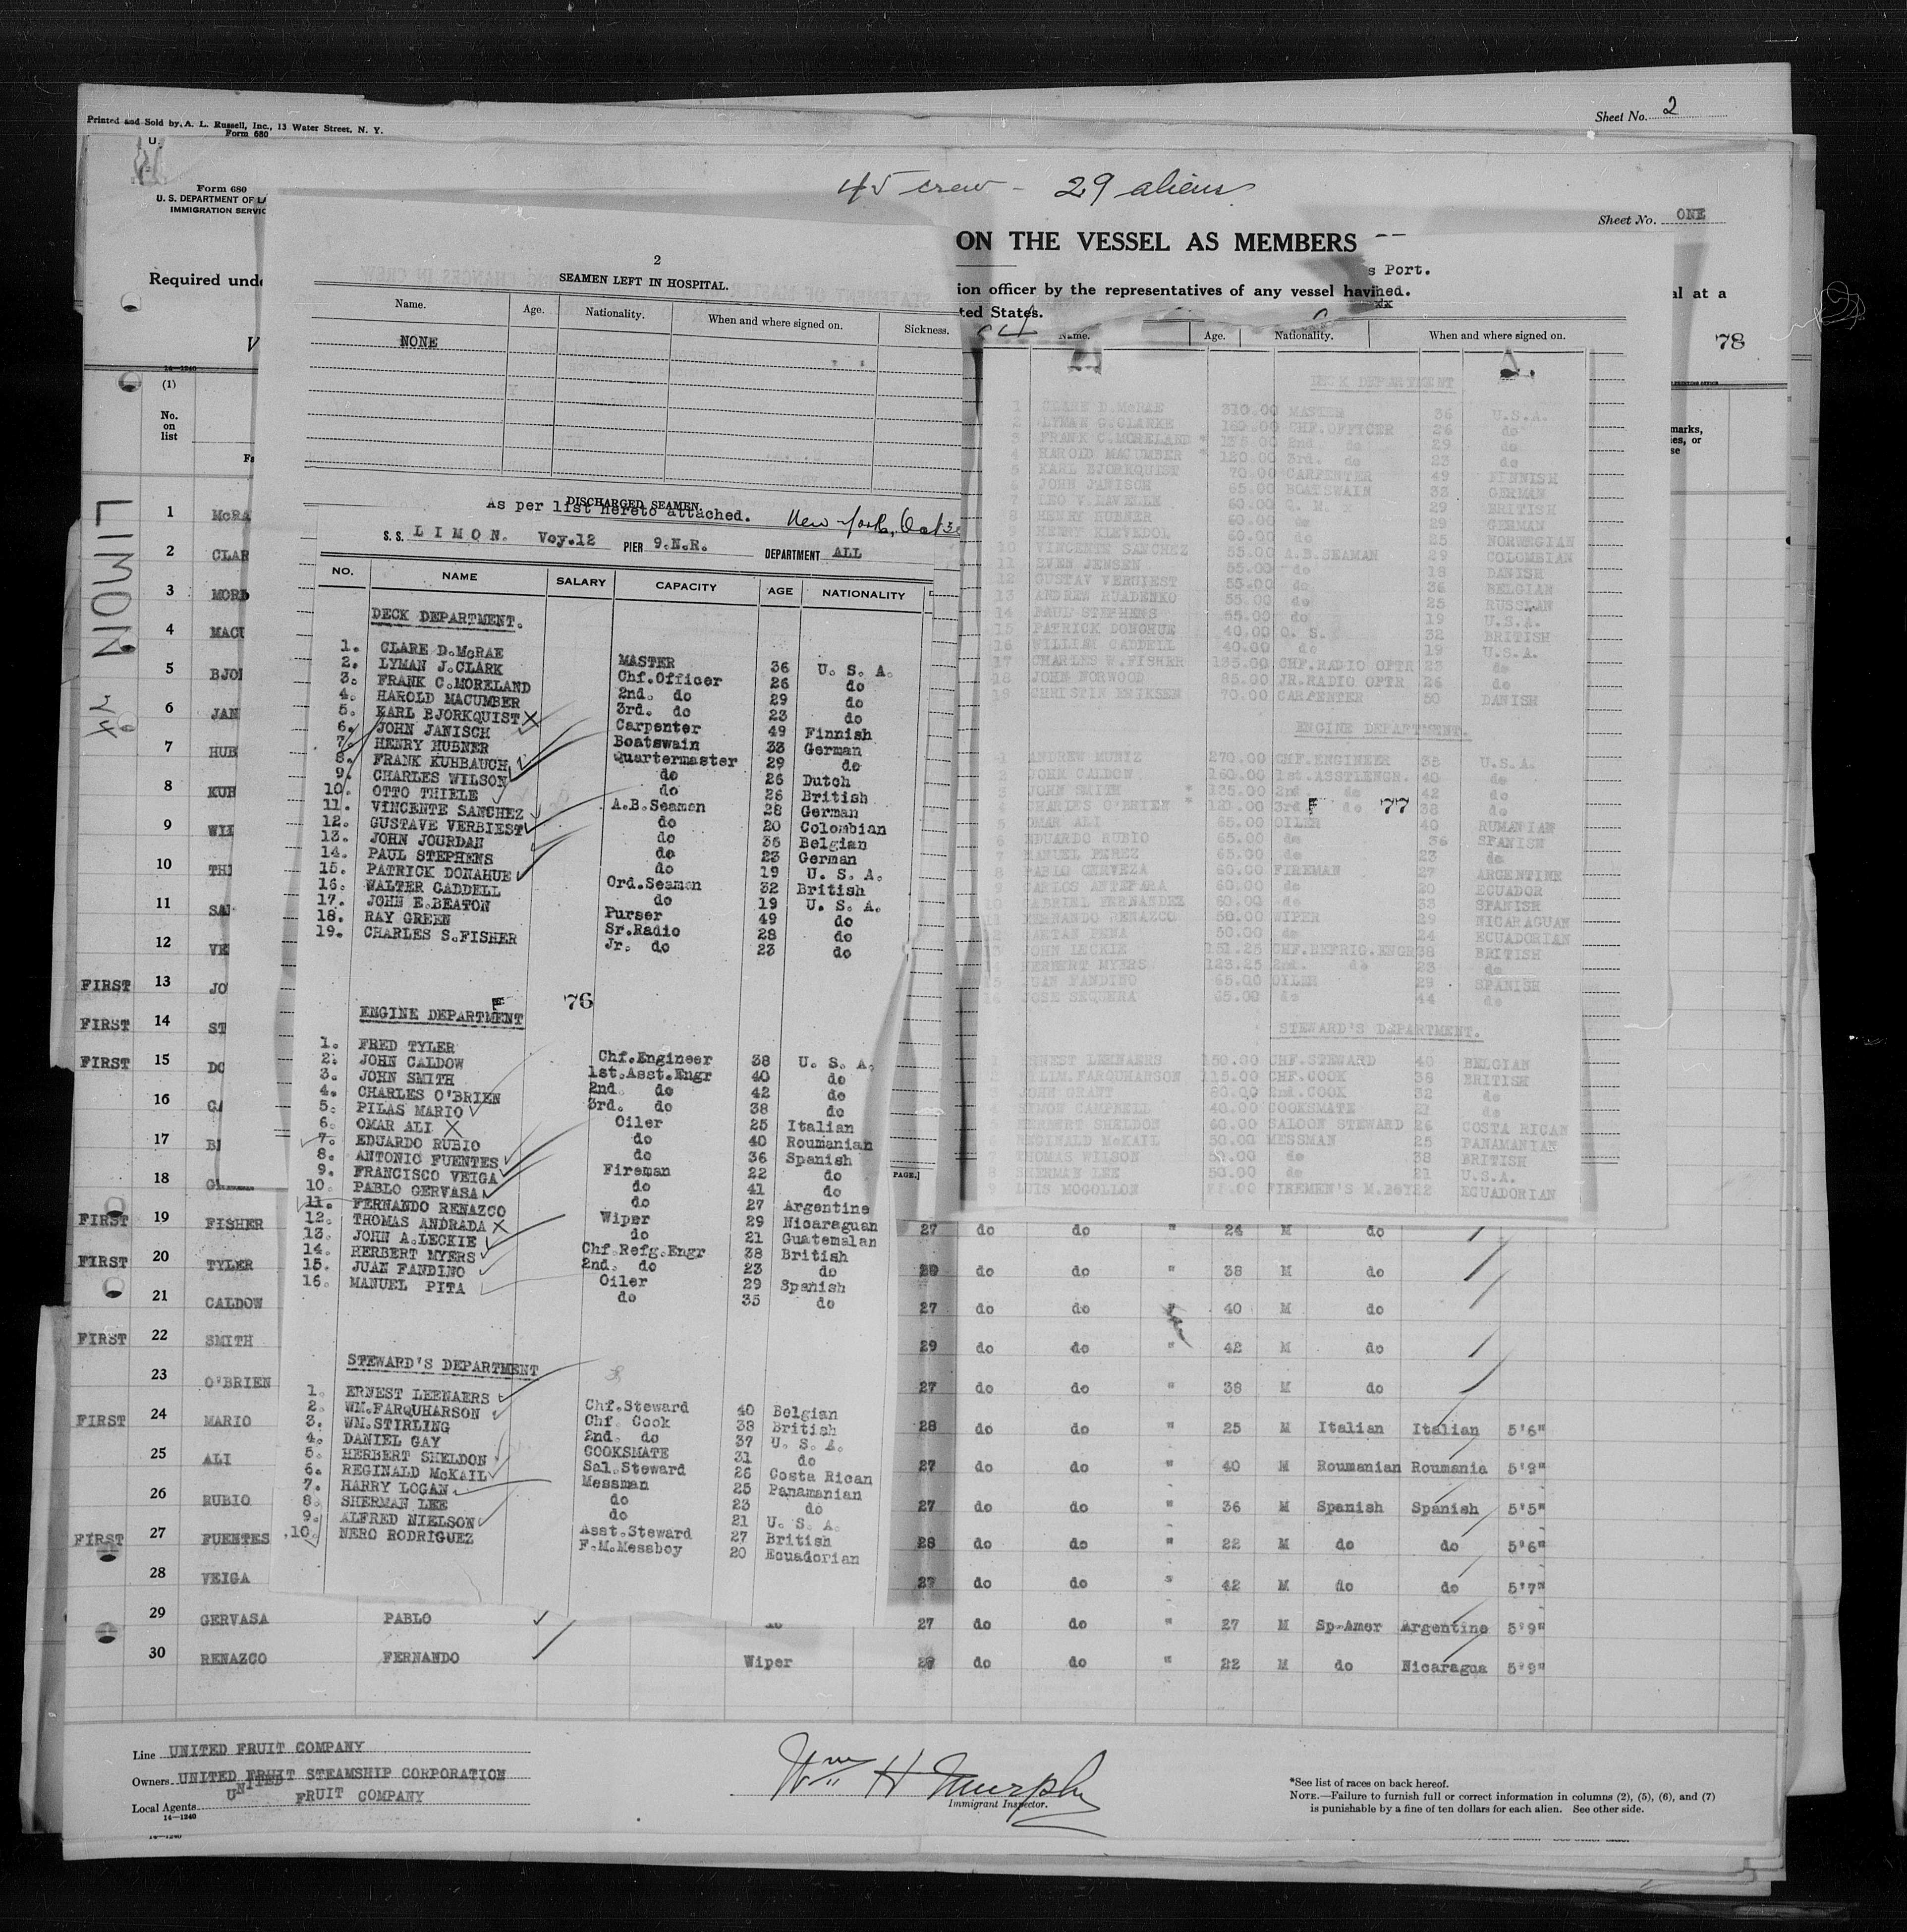 Printed and Sold by A. L. Russell, Inc., 13 Water Street, N. Y.
Form 680
Sheet No. 2
Form 680
U. S. DEPARTMENT OF LA
IMMIGRATION SERVIC
45 crew - 29 aliens
Sheet No. ONE
Required unde
ON THE VESSEL AS MEMBERS
s Port.
ion officer by the representatives of any vessel having
ned.
al at a
ted States.
Name. Age. Nationality. When and where signed on.
78
14-1240
(1)
No.
on
list
2
SEAMEN LEFT IN HOSPITAL.
Name. Age. Nationality. When and where signed on. Sickness.
NONE
DISCHARGED SEAMEN.
As per list hereto attached. New York, Oct 3
S. S. LIMON. Voy.12 PIER 9.N.R. DEPARTMENT ALL
NO. NAME SALARY CAPACITY AGE NATIONALITY
DECK DEPARTMENT.
1. CLARE D.McRAE MASTER 36 U. S. A.
2. LYMAN J.CLARK Chf.Officer 26 do
3. FRANK C.MORELAND 2nd. do 29 do
4. HAROLD MACUMBER 3rd. do 23 do
5. KARL BJORKQUIST Carpenter 49 Finnish
6. JOHN JANISCH Boatswain 33 German
7. HENRY HUBNER Quartermaster 29 do
8. FRANK KUHBAUCH do 26 Dutch
9. CHARLES WILSON do 26 British
10. OTTO THIELE A.B.Seaman 28 German
11. VINCENTE SANCHEZ do 20 Colombian
12. GUSTAVE VERBIEST do 35 Belgian
13. JOHN JOURDAN do 23 German
14. PAUL STEPHENS do 19 U. S. A.
15. PATRICK DONAHUE Ord.Seaman 32 British
16. WALTER CADDELL do 19 U. S. A.
17. JOHN E.BEATON Purser 49 do
18. RAY GREEN Sr.Radio 28 do
19. CHARLES S.FISHER Jr. do 23 do
F 76
ENGINE DEPARTMENT
1. FRED TYLER Chf.Engineer 38 U. S. A.
2. JOHN CALDOW 1st.Asst.Engr 40 do
3. JOHN SMITH 2nd. do 42 do
4. CHARLES O'BRIEN 3rd. do 38 do
5. PILAS MARIO Oiler 25 Italian
6. OMAR ALI do 40 Roumanian
7. EDUARDO RUBIO do 36 Spanish
8. ANTONIO FUENTES Fireman 22 do
9. FRANCISCO VEIGA do 41 do
10. PABLO GERVASA do 27 Argentine
11. FERNANDO RENAZCO Wiper 29 Nicaraguan
12. THOMAS ANDRADA do 21 Guatemalan
13. JOHN A.LECKIE Chf.Refg.Engr 38 British
14. HERBERT MYERS 2nd. do 23 do
15. JUAN FANDINO Oiler 29 Spanish
16. MANUEL PITA do 35 do
STEWARD'S DEPARTMENT
1. ERNEST LEENAERS Chf.Steward 40 Belgian
2. WM.FARQUHARSON Chf. Cook 38 British
3. WM.STIRLING 2nd. do 37 U. S. A.
4. DANIEL GAY COOKSMATE 31 do
5. HERBERT SHELDON Sal.Steward 26 Costa Rican
6. REGINALD McKAIL Messman 25 Panamanian
7. HARRY LOGAN do 23 do
8. SHERMAN LEE do 21 U. S. A.
9. ALFRED NIELSON Asst.Steward 27 British
10. NERO RODRIGUEZ F.M.Messboy 20 Ecuadorian
DECK DEPARTMENT
1 CLARE D.McRAE 310.00 MASTER 36 U.S.A.
2 LYMAN G.CLARKE 160.00 CHF.OFFICER 26 do
3 FRANK C.MORELAND * 135.00 2nd. do 29 do
4 HAROLD MACUMBER * 120.00 3rd. do 23 do
5 KARL BJORKQUIST 70.00 CARPENTER 49 FINNISH
6 JOHN JANISCH 65.00 BOATSWAIN 33 GERMAN
7 LEO V.LAVELLE 60.00 Q. M. 29 BRITISH
8 HENRY HUBNER 60.00 do 29 GERMAN
9 HENRY KLEVEDOL 60.00 do 25 NORWEGIAN
10 VINCENTE SANCHEZ 55.00 A.B.SEAMAN 29 COLOMBIAN
11 SVEN JENSEN 55.00 do 18 DANISH
12 GUSTAV VERBIEST 55.00 do 36 BELGIAN
13 ANDREW RUADENKO 55.00 do 25 RUSSIAN
14 PAUL STEPHENS 55.00 do 19 U.S.A.
15 PATRICK DONOHUE 40.00 O. S. 32 BRITISH
16 WILLIAM CADDELL 40.00 do 19 U.S.A.
17 CHARLES W.FISHER 135.00 CHF.RADIO OPTR 23 do
18 JOHN NORWOOD 85.00 JR.RADIO OPTR 26 do
19 CHRISTIN ERIKSEN 70.00 CARPENTER 50 DANISH
ENGINE DEPARTMENT.
1 ANDREW MUNIZ 270.00 CHF.ENGINEER 35 U.S.A.
2 JOHN CALDOW 160.00 1st.ASST.ENGR. 40 do
3 JOHN SMITH * 135.00 2nd do 42 do
4 CHARLES O'BRIEN * 120.00 3rd do 38 do
F 77
5 OMAR ALI 65.00 OILER 40 RUMANIAN
6 EDUARDO RUBIO 65.00 do 36 SPANISH
7 MANUEL PEREZ 65.00 do 23 do
8 PABLO CERVEZA 60.00 FIREMAN 27 ARGENTINE
9 CARLOS ANTEPARA 60.00 do 20 ECUADOR
10 GABRIEL FERNANDEZ 60.00 do 33 SPANISH
11 FERNANDO RENAZCO 50.00 WIPER 29 NICARAGUAN
12 GAETAN PENA 50.00 do 24 ECUADORIAN
13 JOHN LECKIE 151.25 CHF.REFRIG.ENGR 38 BRITISH
14 HERBERT MYERS 123.25 2nd. do 23 do
15 JUAN FANDINO 65.00 OILER 29 SPANISH
16 JOSE SEQUERA 65.00 do 44 do
STEWARD'S DEPARTMENT.
1 ERNEST LEENAERS 150.00 CHF.STEWARD 40 BELGIAN
2 WILLIM.FARQUHARSON 115.00 CHF.COOK 38 BRITISH
3 JOHN GRANT 80.00 2nd.COOK 32 do
4 SIMON CAMPBELL 40.00 COOKSMATE 21 do
5 HERBERT SHELDON 60.00 SALOON STEWARD 26 COSTA RICAN
6 REGINALD McKAIL 50.00 MESSMAN 25 PANAMANIAN
7 THOMAS WILSON 50.00 do 38 BRITISH
8 SHERMAN LEE 50.00 do 21 U.S.A.
9 LUIS MOGOLLON FIREMEN'S M.BOY 22 ECUADORIAN
PAGE.]
LIMON
1 McRA
2 CLAR
3 MORE
4 MACU
5 BJOR
6 JAN
7 HUB
8 KUH
9 WIL
10 THI
11 SAN
12 VE
FIRST 13 JO
FIRST 14 ST
FIRST 15 DO
16 CA
17 B
18 G
FIRST 19 FISHER 27 do do " 24 M do
FIRST 20 TYLER 29 do do " 38 M do
21 CALDOW 27 do do " 40 M do
FIRST 22 SMITH 29 do do " 42 M do
23 O'BRIEN 27 do do " 38 M do
FIRST 24 MARIO 28 do do " 25 M Italian Italian 5'6"
25 ALI 27 do do " 40 M Roumanian Roumania 5'9"
26 RUBIO 27 do do " 36 M Spanish Spanish 5'5"
FIRST 27 FUENTES 28 do do " 22 M do do 5'6"
28 VEIGA 27 do do " 42 M do do 5'7"
29 GERVASA PABLO do 27 do do " 27 M Sp-Amer Argentine 5'9"
30 RENAZCO FERNANDO Wiper 28 do do " 22 M do Nicaragua 5'9"
Line UNITED FRUIT COMPANY
Owners UNITED FRUIT STEAMSHIP CORPORATION
Local Agents UNITED FRUIT COMPANY
14-1240
Wm H Murphy
Immigrant Inspector.
*See list of races on back hereof.
NOTE.—Failure to furnish full or correct information in columns (2), (5), (6), and (7)
is punishable by a fine of ten dollars for each alien. See other side.